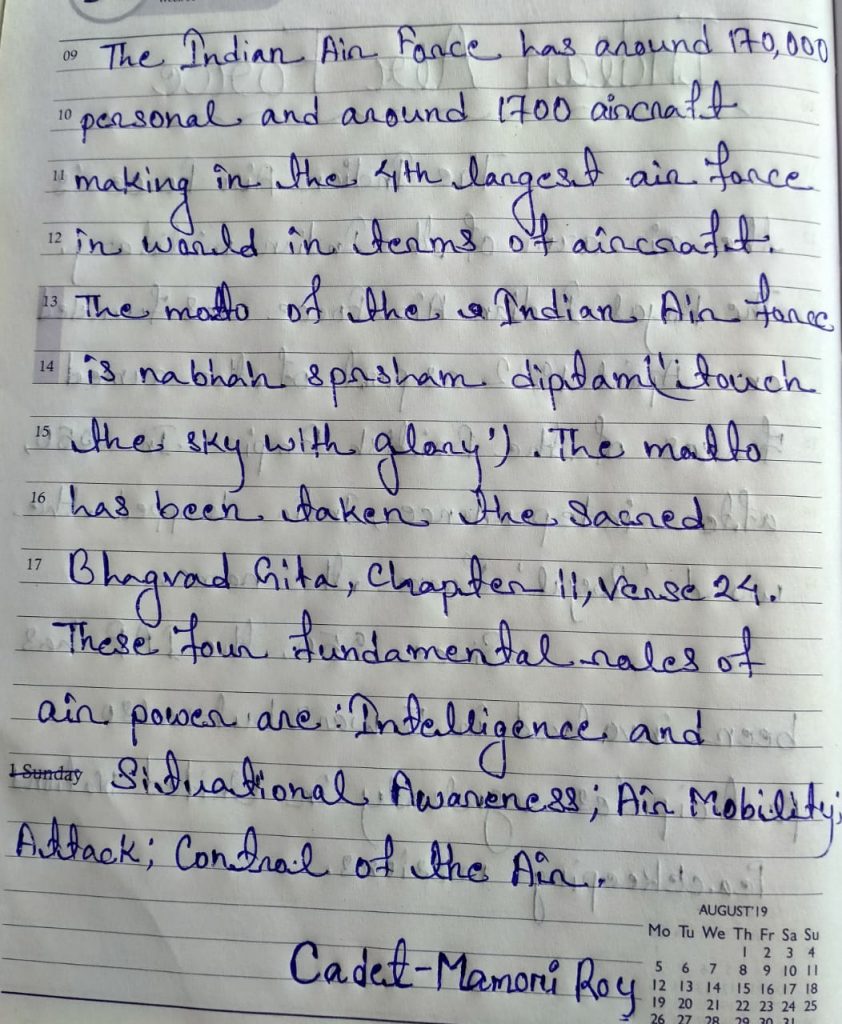 09 The Indian Air Force has around 170,000
10 personal and around 1700 aircraft
11 making in the 4th largest air force
12 in world in terms of aircraft.
13 The motto of the Indian Air force
14 is nabhah sprsham diptam ('touch
15 the sky with glory'). The motto
16 has been taken the sacred
17 Bhagvad Gita, Chapter 11, Verse 24.
These four fundamental roles of
air power are: Intelligence and
1 Sunday Situational Awareness; Air Mobility;
Attack; Control of the Air.
Cadet-Mamoni Roy
AUGUST'19
Mo Tu We Th Fr Sa Su
1 2 3 4
5 6 7 8 9 10 11
12 13 14 15 16 17 18
19 20 21 22 23 24 25
26 27 28 29 30 31